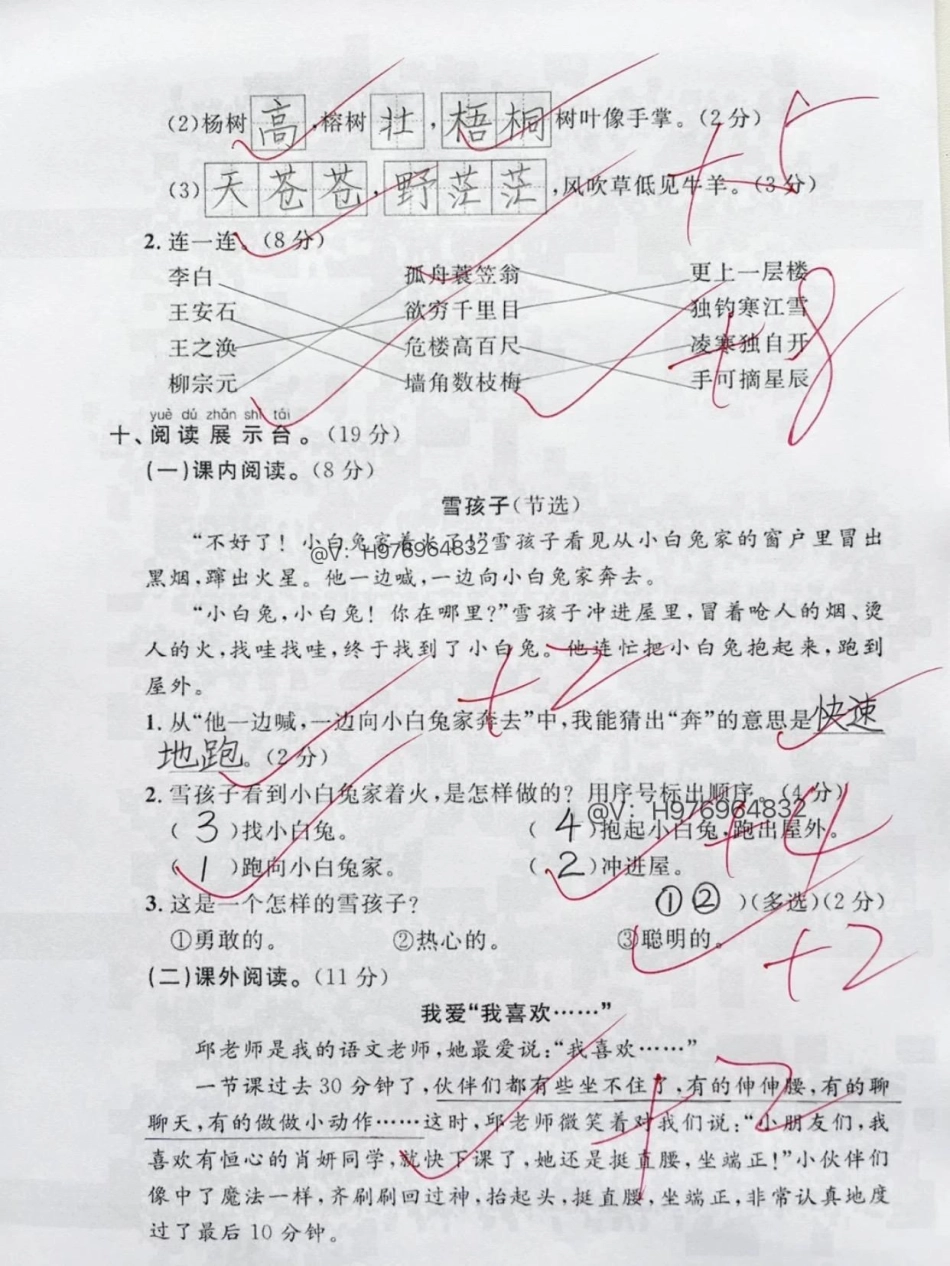 (2)杨树高,榕树壮,梧桐树叶像手掌。(2分)
+5
(3)天苍苍,野茫茫,风吹草低见牛羊。(3分)
2.连一连。(8分)
李白 孤舟蓑笠翁 更上一层楼
王安石 欲穷千里目 独钓寒江雪
+8
王之涣 危楼高百尺 凌寒独自开
柳宗元 墙角数枝梅 手可摘星辰
yuè dú zhǎn shì tái
十、阅读展示台。(19分)
(一)课内阅读。(8分)
雪孩子(节选)
“不好了!小白兔家着火了!”雪孩子看见从小白兔家的窗户里冒出
@V:H976964832
黑烟,蹿出火星。他一边喊,一边向小白兔家奔去。
“小白兔,小白兔!你在哪里?”雪孩子冲进屋里,冒着呛人的烟、烫
人的火,找哇找哇,终于找到了小白兔。他连忙把小白兔抱起来,跑到
屋外。
+2
1.从“他一边喊,一边向小白兔家奔去”中,我能猜出“奔”的意思是快速
地跑。(2分)
2.雪孩子看到小白兔家着火,是怎样做的?用序号标出顺序。(4分)
@V:H976964832
(3)找小白兔。 (4)抱起小白兔,跑出屋外。
+4
(1)跑向小白兔家。 (2)冲进屋。
3.这是一个怎样的雪孩子? ①②)(多选)(2分)
①勇敢的。 ②热心的。 ③聪明的。
+2
(二)课外阅读。(11分)
我爱“我喜欢……”
邱老师是我的语文老师,她最爱说:“我喜欢……”
一节课过去30分钟了,伙伴们都有些坐不住了,有的伸伸腰,有的聊
聊天,有的做做小动作……这时,邱老师微笑着对我们说:“小朋友们,我
+2
喜欢有恒心的肖妍同学,就快下课了,她还是挺直腰,坐端正!”小伙伴们
像中了魔法一样,齐刷刷回过神,抬起头,挺直腰,坐端正,非常认真地度
过了最后10分钟。